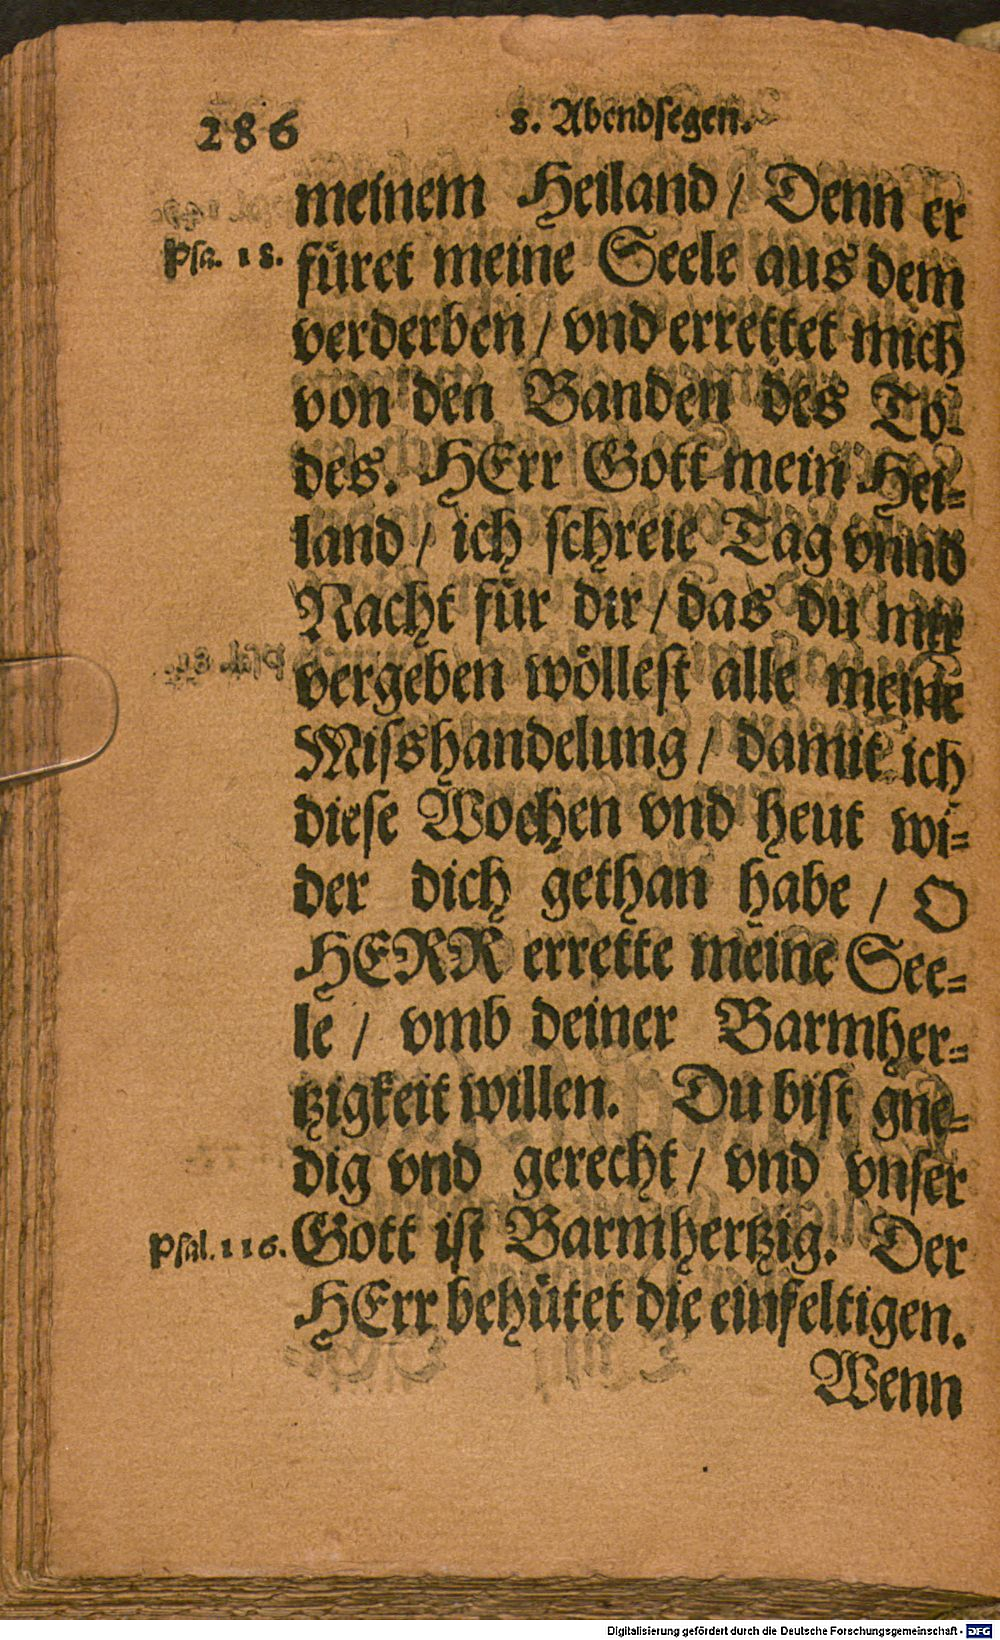 286 8. Abendsegen.
meinem Heiland / Denn er
Psa. 18. füret meine Seele aus dem
verderben / vnd errettet mich
von den Banden des To-
des. HErr Gott mein Hei-
land / ich schreie Tag vnnd
Nacht für dir / das du mir
vergeben wöllest alle meine
Misshandelung / damit ich
diese Wochen vnd heut wi-
der dich gethan habe / O
HERR errette meine See-
le / vmb deiner Barmher-
tzigkeit willen. Du bist gne-
dig vnd gerecht / vnd vnser
Psal. 116. Gott ist Barmhertzig. Der
HErr behütet die einfeltigen.
Wenn
Digitalisierung gefördert durch die Deutsche Forschungsgemeinschaft - DFG